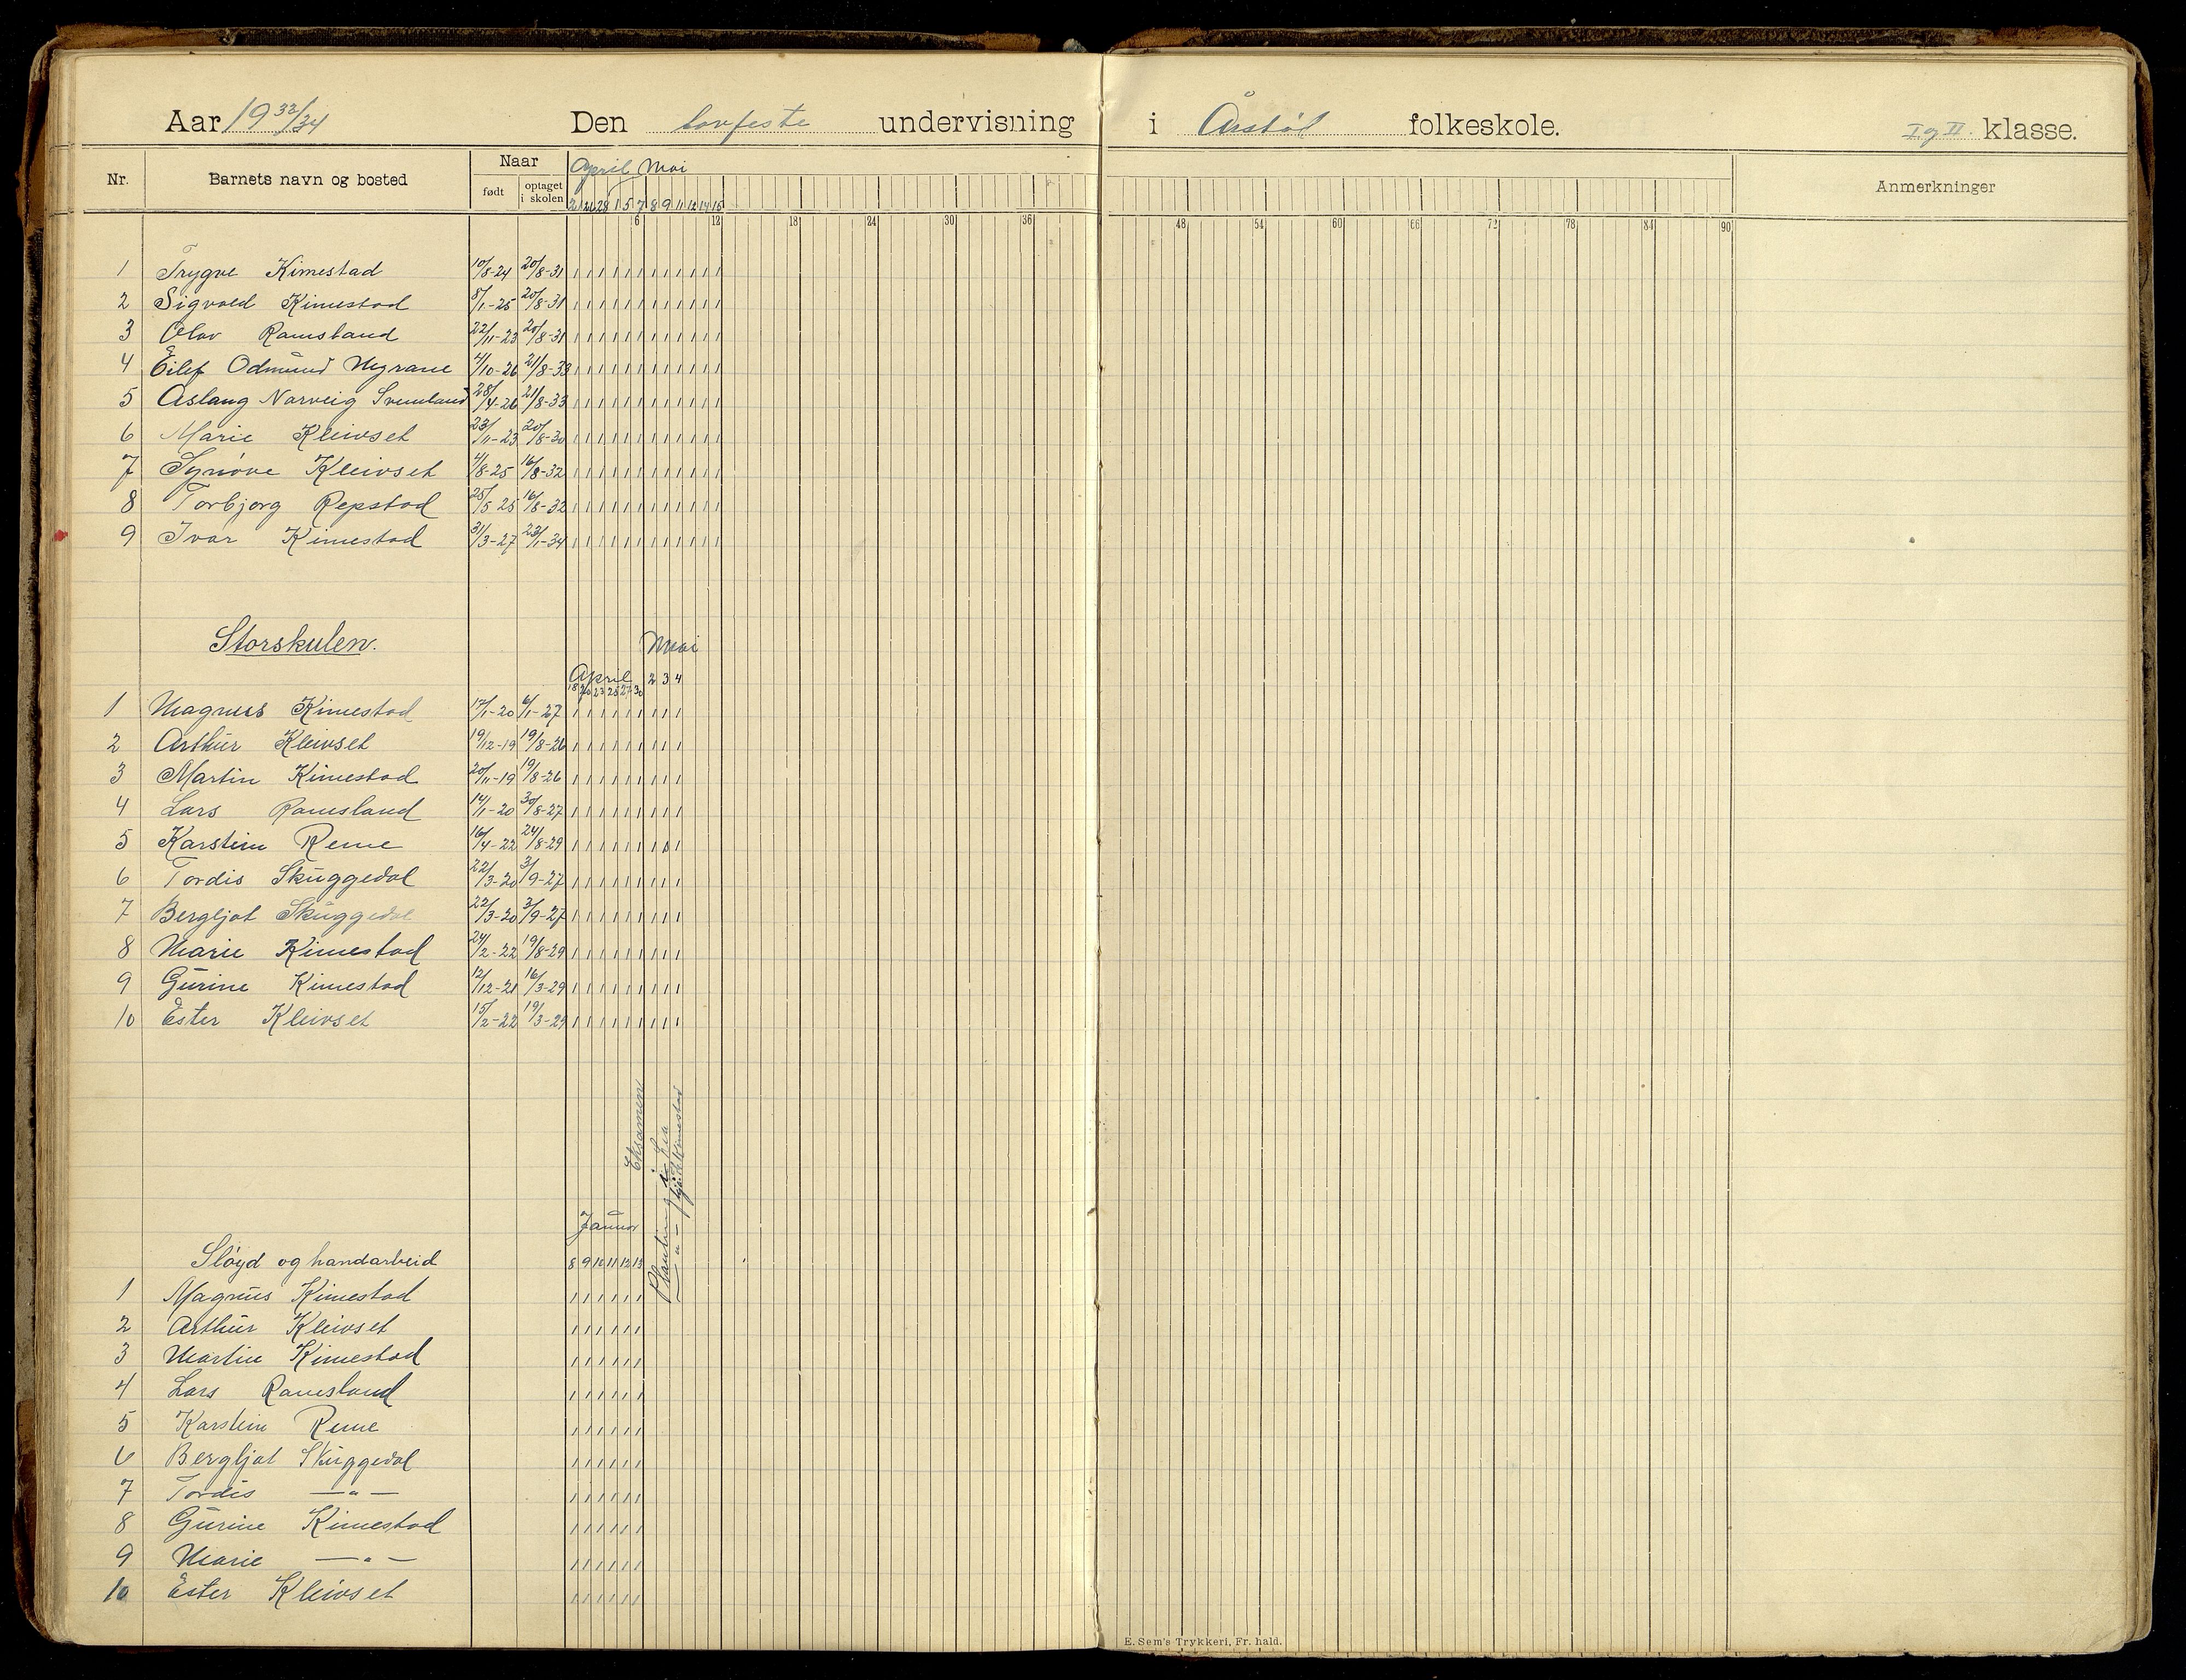 Aar 19 33/34 Den lovfeste undervisning i Årstøl folkeskole. I og II klasse.
Nr. Barnets navn og bosted Naar født optaget i skolen April Mai Anmerkninger
26 28 1 5 7 8 9 11 12 14 15
6 12 18 24 30 36 48 54 60 66 72 78 84 90
1 Trygve Kimestad 10/8-24 20/8-31
2 Sigvald Kimestad 8/1-25 20/8-31
3 Olav Ramsland 22/11-23 20/8-31
4 Eilef Odmund Nyrane 4/10-26 21/8-33
5 Aslaug Norveig Svemland 28/4-26 21/8-33
6 Marie Kleivset 23/11-23 20/8-30
7 Synøve Kleivset 4/8-25 16/8-32
8 Torbjorg Repstad 25/5-25 16/8-32
9 Ivar Kimestad 31/3-27 23/1-34
Storskulen.
April Mai
18 20 23 25 27 30 2 3 4
1 Magnus Kimestad 17/1-20 6/1-27
2 Arthur Kleivset 19/12-19 19/8-26
3 Martin Kimestad 20/11-19 19/8-26
4 Lars Ramsland 14/1-20 30/8-27
5 Karstein Reme 16/4-22 24/8-29
6 Tordis Skuggedal 22/3-20 3/9-27
7 Bergljot Skuggedal 22/3-20 3/9-27
8 Marie Kimestad 24/2-22 19/8-29
9 Gurine Kimestad 12/12-21 16/3-29
10 Ester Kleivset 15/2-22 19/3-29
Eksamen
Planting i Lia
—"— Kimestad
Januar
Sløyd og handarbeid 8 9 10 11 12 13
1 Magnus Kimestad
2 Arthur Kleivset
3 Martin Kimestad
4 Lars Ramsland
5 Karstein Reme
6 Bergljot Skuggedal
7 Tordis —"—
8 Gurine Kimestad
9 Marie —"—
10 Ester Kleivset
E. Sem's Trykkeri, Fr. hald.